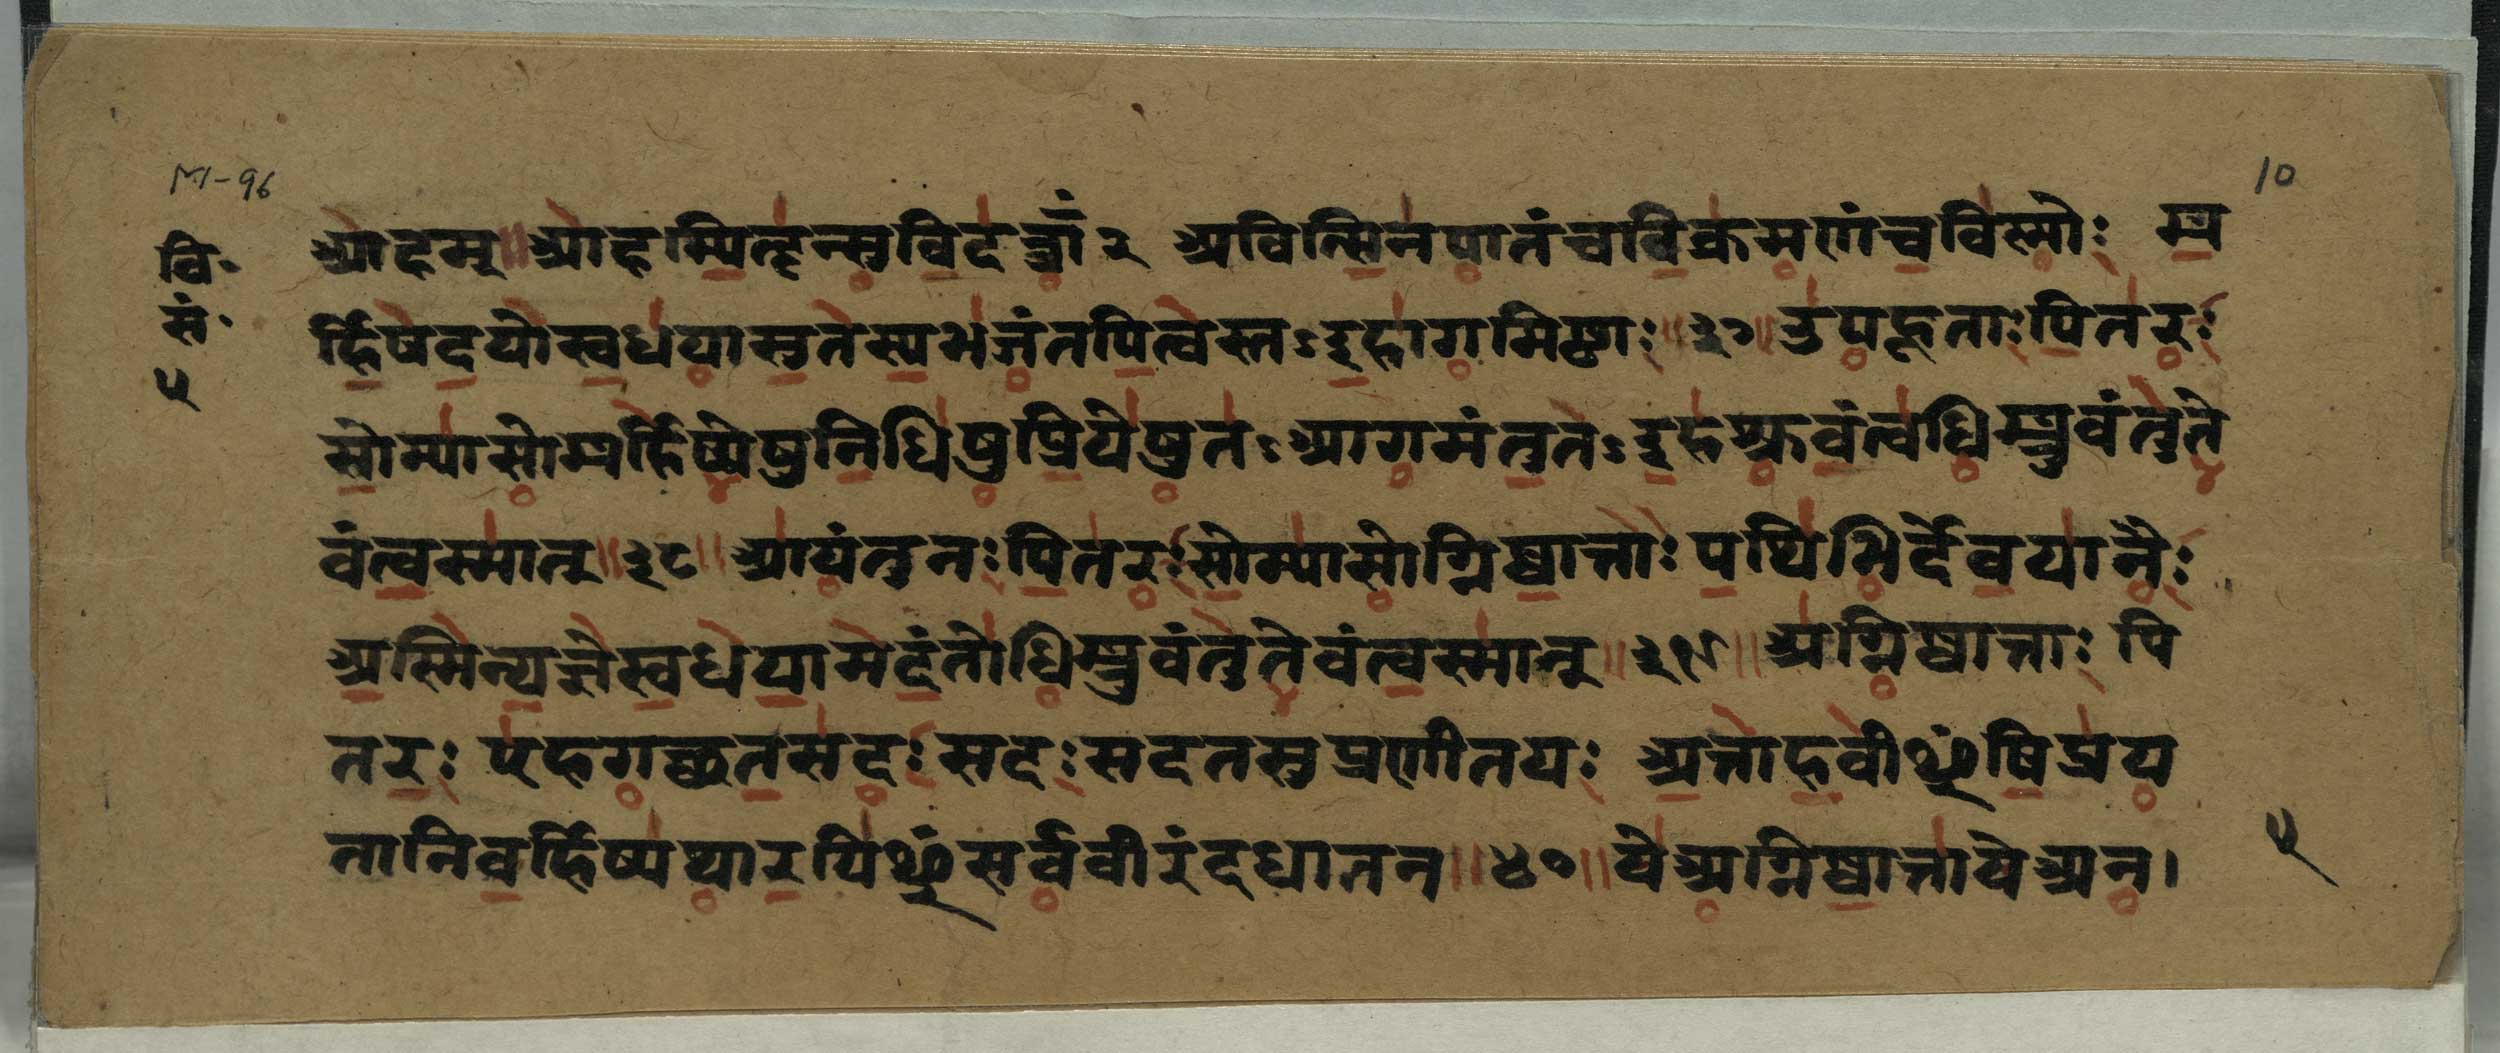 M-96
10
वि॰
सं॰
५
आहम् ॥ आहम्पितॄन्सुविदत्राँ२ अवित्सिनपातंचविक्रमणंचविष्मोः ब
र्हिषदयोस्वधयासुतस्यभजंतपित्वस्तऽइहागमिष्टाः ॥ ३७ ॥ उपहूताःपितरः
सोम्यासोबर्हिष्येषुनिधिषुप्रियेषुतऽआगमंतुतऽइहश्रुवंत्वधिब्रुवंतुते
वंत्वस्मान् ॥ ३८ ॥ आयंतुनःपितरःसोम्यासोग्निष्वात्ताः पथिभिर्देवयानैः
अस्मिन्यज्ञेस्वधयामदंतोधिब्रुवंतुतेवंत्वस्मान् ॥ ३९ ॥ अग्निष्वात्ताः पि
तरः एहगच्छतसदःसदःसदतसुप्रणीतयः अत्ताहवीꣳषिप्रय
तानिबर्हिष्यथारयिꣳसर्ववीरंदधातन ॥ ४० ॥ येअग्निष्वात्तायेअन।
५